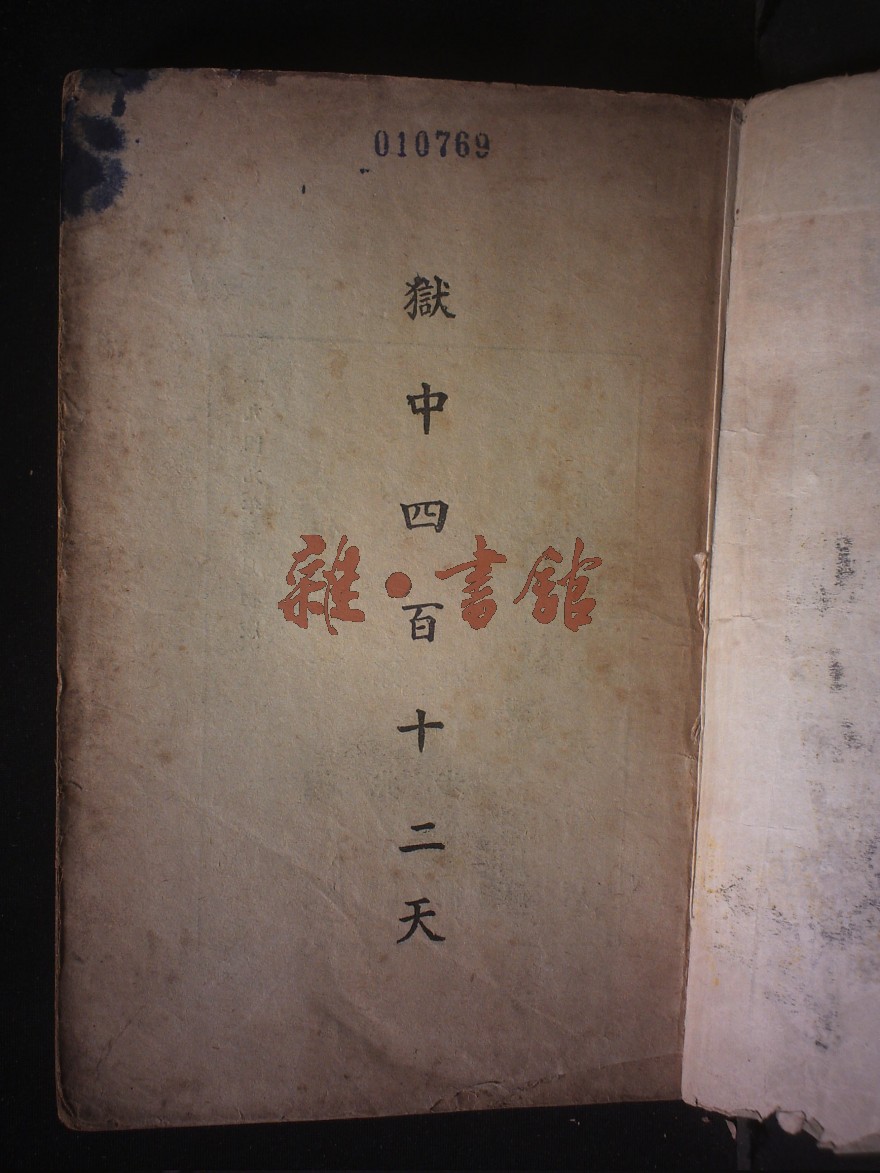 010769
獄中四百十二天
雜·書館